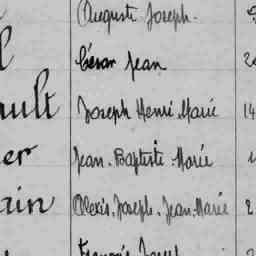 Auguste Joseph.
César Jean
ault Joseph Henri Marie 14
er Jean-Baptiste-Marie
ain Alexis, Joseph, Jean-Marie 2
François Joseph